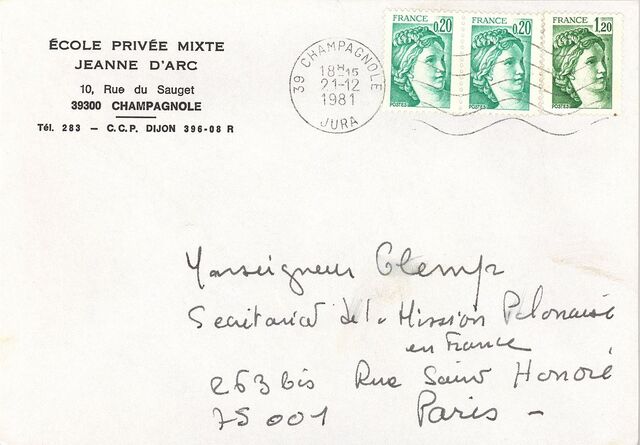 ÉCOLE PRIVÉE MIXTE
JEANNE D'ARC
10, Rue du Sauget
39300 CHAMPAGNOLE
Tél. 283 — C.C.P. DIJON 396-08 R
39 CHAMPAGNOLE
18H15
21-12
1981
JURA
FRANCE
0,20
POSTES
FRANCE
0,20
POSTES
FRANCE
1,20
POSTES
Monseigneur Glemp
Secrétariat de la Mission Polonaise
en France
263 bis Rue Saint Honoré
75001 Paris -